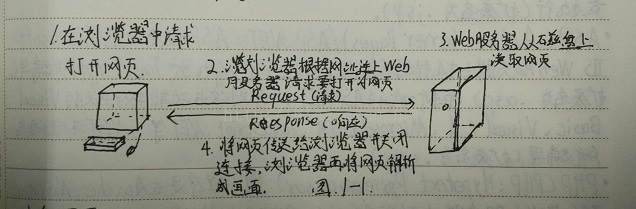 1.在浏览器中请求
打开网页.
2.浏览器根据网址连上Web
服务器请求要打开的网页
Request(请求)
Response(响应)
3.Web服务器从磁盘上
读取网页
4.将网页传送给浏览器并关闭
连接,浏览器再将网页解析
成画面.
图.1-1.